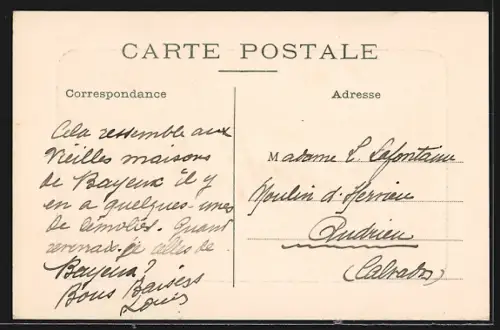 CARTE POSTALE
Correspondance
Adresse
Cela ressemble aux
vieilles maisons
de Bayeux il y
en a quelques-unes
de démolies. Quand
reverrais-je celles de
Bayeux?
Bons Baisers
Louis
Madame L. Lafontaine
Moulin d'Hervieu
Audrieu
(Calvados)